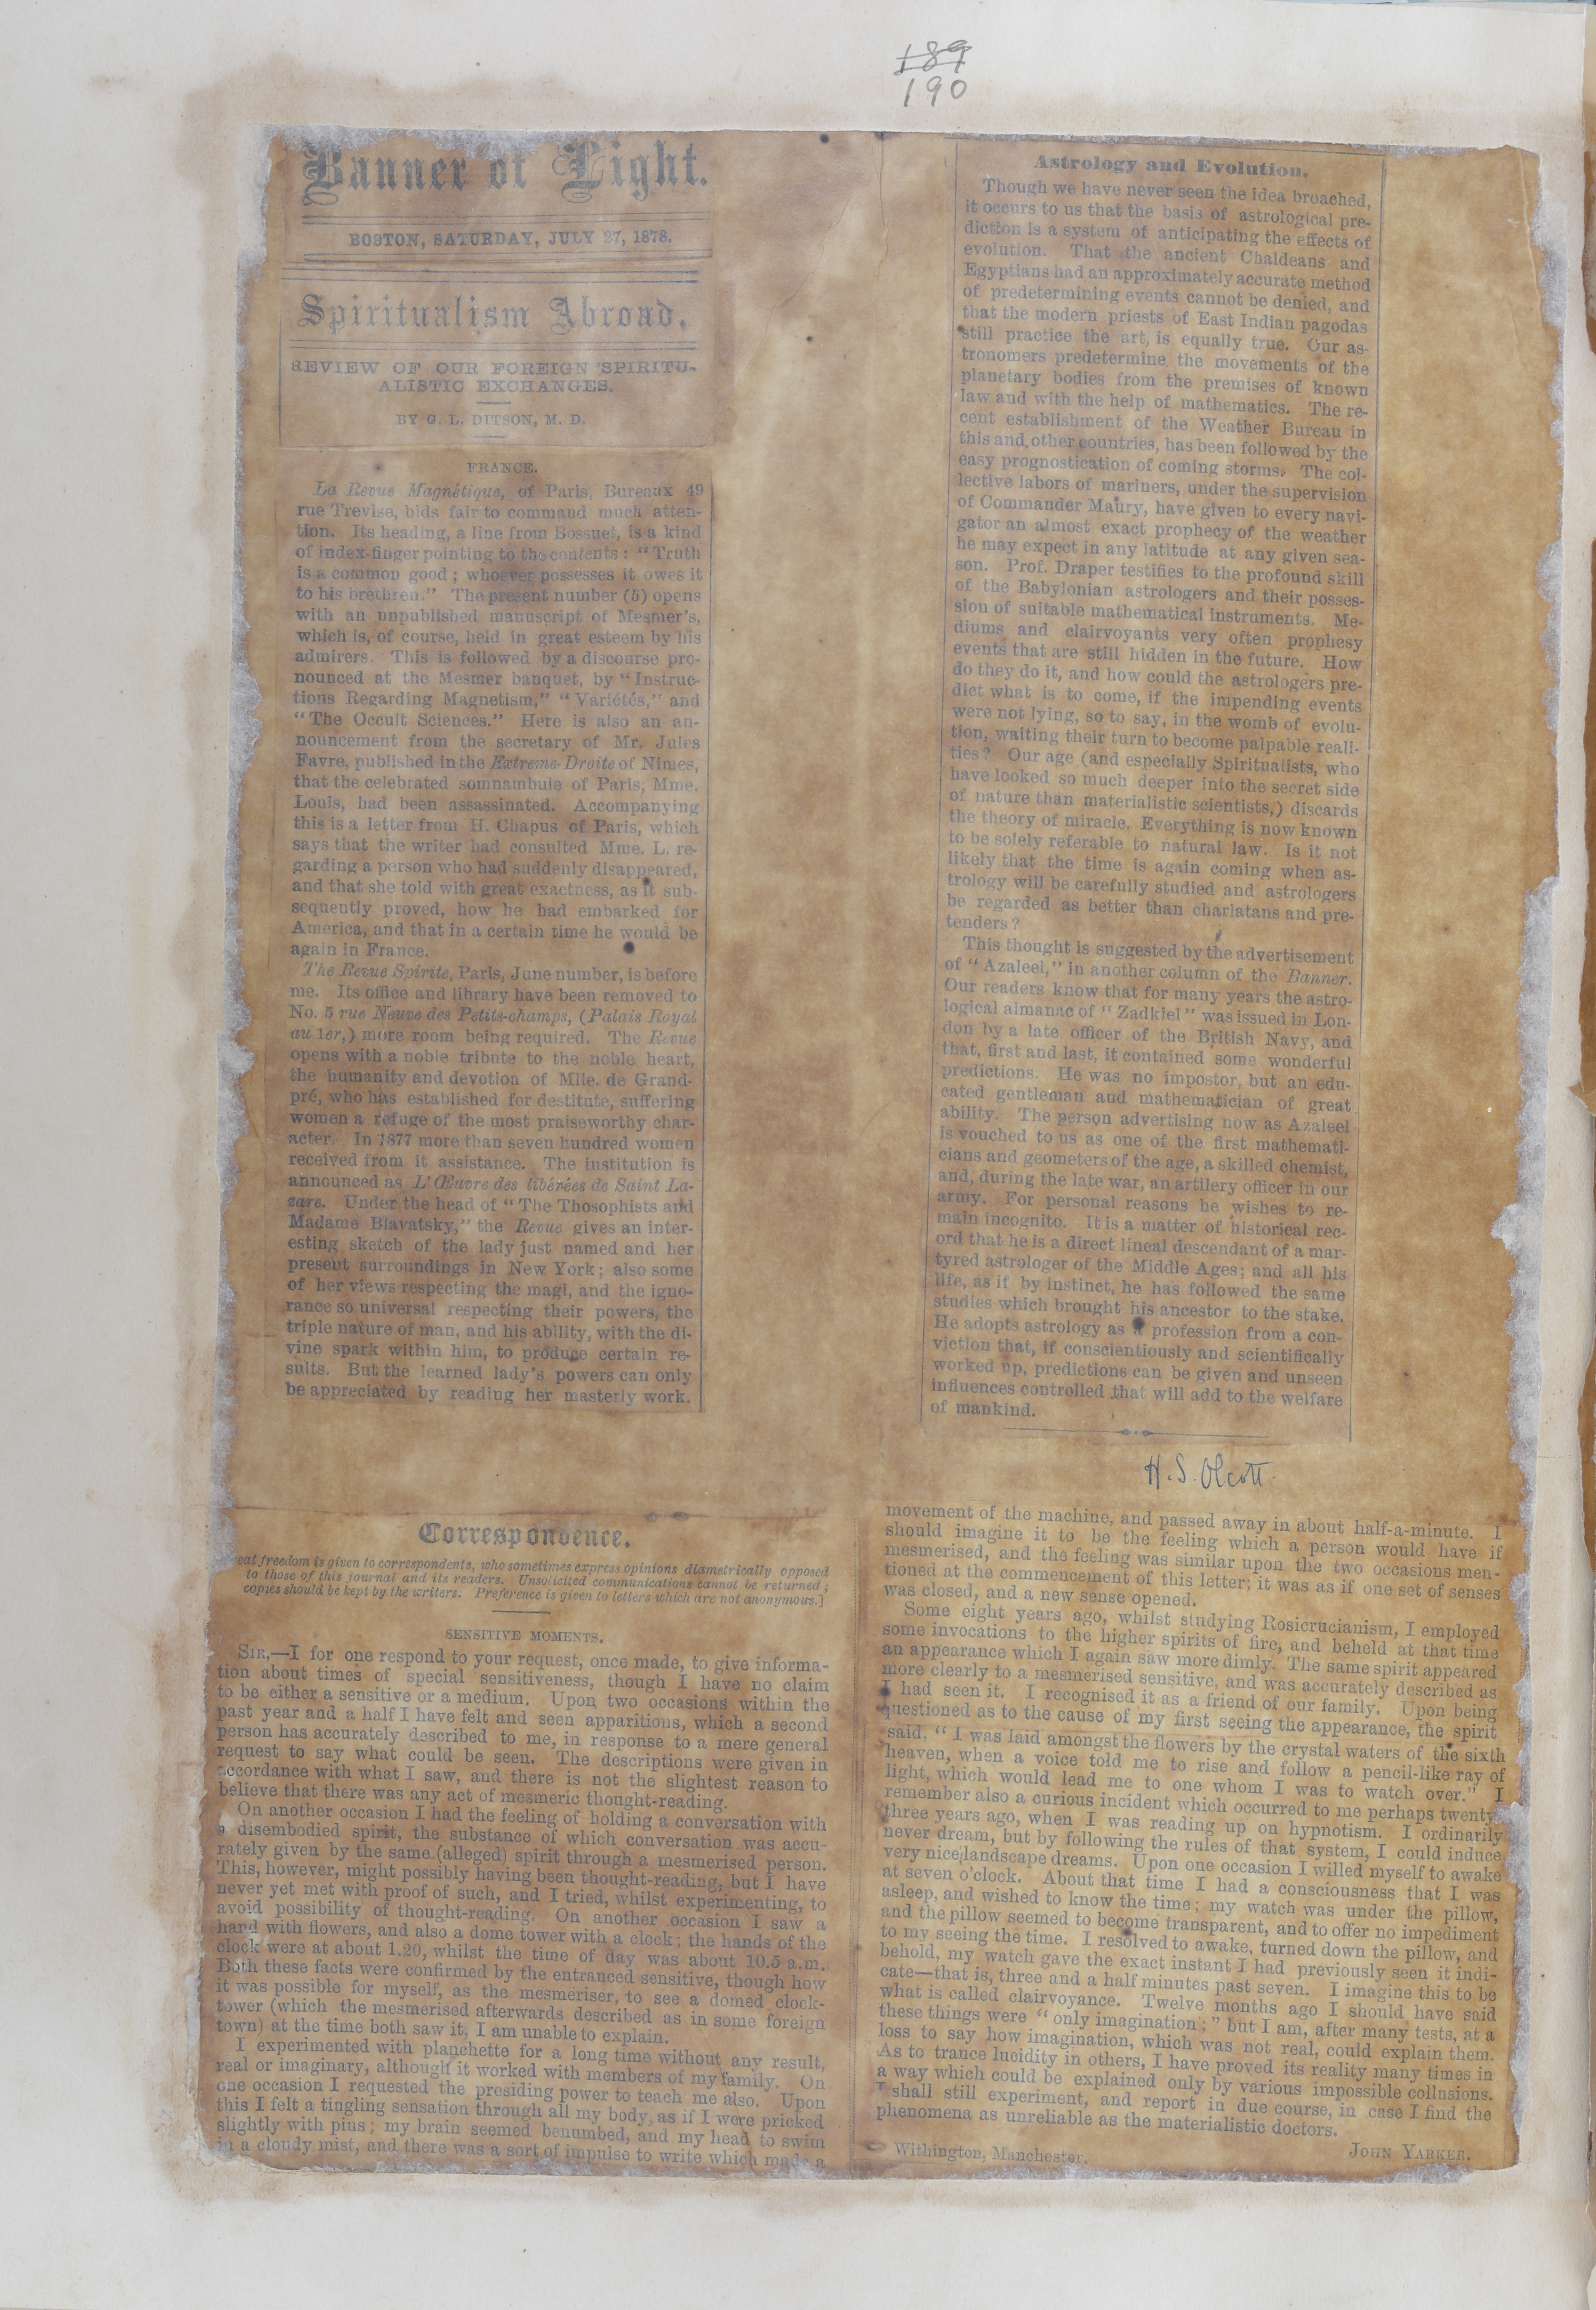 189
190
Banner of Light.
BOSTON, SATURDAY, JULY 27, 1878.
Spiritualism Abroad.
REVIEW OF OUR FOREIGN SPIRITU-
ALISTIC EXCHANGES.
BY G. L. DITSON, M. D.
FRANCE.
La Revue Magnétique, of Paris, Bureaux 49
rue Trevise, bids fair to command much atten-
tion. Its heading, a line from Bossuet, is a kind
of index-finger pointing to the contents: "Truth
is a common good; whoever possesses it owes it
to his brethren." The present number (5) opens
with an unpublished manuscript of Mesmer's,
which is, of course, held in great esteem by his
admirers. This is followed by a discourse pro-
nounced at the Mesmer banquet, by "Instruc-
tions Regarding Magnetism," "Variétés," and
"The Occult Sciences." Here is also an an-
nouncement from the secretary of Mr. Jules
Favre, published in the Extreme-Droite of Nimes,
that the celebrated somnambule of Paris, Mme.
Louis, had been assassinated. Accompanying
this is a letter from H. Chapus of Paris, which
says that the writer had consulted Mme. L. re-
garding a person who had suddenly disappeared,
and that she told with great exactness, as it sub-
sequently proved, how he had embarked for
America, and that in a certain time he would be
again in France.
The Revue Spirite, Paris, June number, is before
me. Its office and library have been removed to
No. 5 rue Neuve des Petits-champs, (Palais Royal
au 1er,) more room being required. The Revue
opens with a noble tribute to the noble heart,
the humanity and devotion of Mlle. de Grand-
pré, who has established for destitute, suffering
women a refuge of the most praiseworthy char-
acter. In 1877 more than seven hundred women
received from it assistance. The institution is
announced as L'Œuvre des libérées de Saint La-
zare. Under the head of "The Thosophists and
Madame Blavatsky," the Revue gives an inter-
esting sketch of the lady just named and her
present surroundings in New York; also some
of her views respecting the magi, and the igno-
rance so universal respecting their powers, the
triple nature of man, and his ability, with the di-
vine spark within him, to produce certain re-
sults. But the learned lady's powers can only
be appreciated by reading her masterly work.
Astrology and Evolution.
Though we have never seen the idea broached,
it occurs to us that the basis of astrological pre-
diction is a system of anticipating the effects of
evolution. That the ancient Chaldeans and
Egyptians had an approximately accurate method
of predetermining events cannot be denied, and
that the modern priests of East Indian pagodas
still practice the art, is equally true. Our as-
tronomers predetermine the movements of the
planetary bodies from the premises of known
law and with the help of mathematics. The re-
cent establishment of the Weather Bureau in
this and other countries, has been followed by the
easy prognostication of coming storms. The col-
lective labors of mariners, under the supervision
of Commander Maury, have given to every navi-
gator an almost exact prophecy of the weather
he may expect in any latitude at any given sea-
son. Prof. Draper testifies to the profound skill
of the Babylonian astrologers and their posses-
sion of suitable mathematical instruments. Me-
diums and clairvoyants very often prophesy
events that are still hidden in the future. How
do they do it, and how could the astrologers pre-
dict what is to come, if the impending events
were not lying, so to say, in the womb of evolu-
tion, waiting their turn to become palpable reali-
ties? Our age (and especially Spiritualists, who
have looked so much deeper into the secret side
of nature than materialistic scientists,) discards
the theory of miracle. Everything is now known
to be solely referable to natural law. Is it not
likely that the time is again coming when as-
trology will be carefully studied and astrologers
be regarded as better than charlatans and pre-
tenders?
This thought is suggested by the advertisement
of "Azaleel," in another column of the Banner.
Our readers know that for many years the astro-
logical almanac of "Zadkiel" was issued in Lon-
don by a late officer of the British Navy, and
that, first and last, it contained some wonderful
predictions. He was no impostor, but an edu-
cated gentleman and mathematician of great
ability. The person advertising now as Azaleel
is vouched to us as one of the first mathemati-
cians and geometers of the age, a skilled chemist,
and, during the late war, an artilery officer in our
army. For personal reasons he wishes to re-
main incognito. It is a matter of historical rec-
ord that he is a direct lineal descendant of a mar-
tyred astrologer of the Middle Ages; and all his
life, as if by instinct, he has followed the same
studies which brought his ancestor to the stake.
He adopts astrology as a profession from a con-
viction that, if conscientiously and scientifically
worked up, predictions can be given and unseen
influences controlled that will add to the welfare
of mankind.
H. S. Olcott
Correspondence.
eat freedom is given to correspondents, who sometimes express opinions diametrically opposed
to those of this journal and its readers. Unsolicited communications cannot be returned;
copies should be kept by the writers. Preference is given to letters which are not anonymous.]
SENSITIVE MOMENTS.
SIR,—I for one respond to your request, once made, to give informa-
tion about times of special sensitiveness, though I have no claim
to be either a sensitive or a medium. Upon two occasions within the
past year and a half I have felt and seen apparitions, which a second
person has accurately described to me, in response to a mere general
request to say what could be seen. The descriptions were given in
accordance with what I saw, and there is not the slightest reason to
believe that there was any act of mesmeric thought-reading.
On another occasion I had the feeling of holding a conversation with
a disembodied spirit, the substance of which conversation was accu-
rately given by the same (alleged) spirit through a mesmerised person.
This, however, might possibly having been thought-reading, but I have
never yet met with proof of such, and I tried, whilst experimenting, to
avoid possibility of thought-reading. On another occasion I saw a
hand with flowers, and also a dome tower with a clock; the hands of the
clock were at about 1.20, whilst the time of day was about 10.5 a.m.
Both these facts were confirmed by the entranced sensitive, though how
it was possible for myself, as the mesmeriser, to see a domed clock-
tower (which the mesmerised afterwards described as in some foreign
town) at the time both saw it, I am unable to explain.
I experimented with planchette for a long time without any result,
real or imaginary, although it worked with members of my family. On
one occasion I requested the presiding power to teach me also. Upon
this I felt a tingling sensation through all my body, as if I were pricked
slightly with pins; my brain seemed benumbed, and my head to swim
in a cloudy mist, and there was a sort of impulse to write which made a
movement of the machine, and passed away in about half-a-minute. I
should imagine it to be the feeling which a person would have if
mesmerised, and the feeling was similar upon the two occasions men-
tioned at the commencement of this letter; it was as if one set of senses
was closed, and a new sense opened.
Some eight years ago, whilst studying Rosicrucianism, I employed
some invocations to the higher spirits of fire, and beheld at that time
an appearance which I again saw more dimly. The same spirit appeared
more clearly to a mesmerised sensitive, and was accurately described as
I had seen it. I recognised it as a friend of our family. Upon being
questioned as to the cause of my first seeing the appearance, the spirit
said, "I was laid amongst the flowers by the crystal waters of the sixth
heaven, when a voice told me to rise and follow a pencil-like ray of
light, which would lead me to one whom I was to watch over." I
remember also a curious incident which occurred to me perhaps twenty-
three years ago, when I was reading up on hypnotism. I ordinarily
never dream, but by following the rules of that system, I could induce
very nice landscape dreams. Upon one occasion I willed myself to awake
at seven o'clock. About that time I had a consciousness that I was
asleep, and wished to know the time; my watch was under the pillow,
and the pillow seemed to become transparent, and to offer no impediment
to my seeing the time. I resolved to awake, turned down the pillow, and
behold, my watch gave the exact instant I had previously seen it indi-
cate—that is, three and a half minutes past seven. I imagine this to be
what is called clairvoyance. Twelve months ago I should have said
these things were "only imagination;" but I am, after many tests, at a
loss to say how imagination, which was not real, could explain them.
As to trance lucidity in others, I have proved its reality many times in
a way which could be explained only by various impossible collusions.
I shall still experiment, and report in due course, in case I find the
phenomena as unreliable as the materialistic doctors.
JOHN YARKER.
Withington, Manchester.